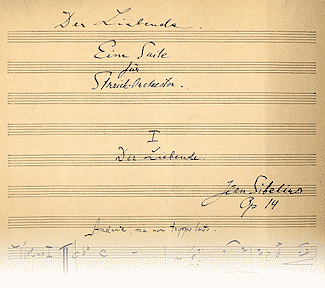 Der Liebende.
Eine Suite
für
Streich-Orchester.
I
Der Liebende
Jean Sibelius
Op 14
Andante, ma non troppo lento.